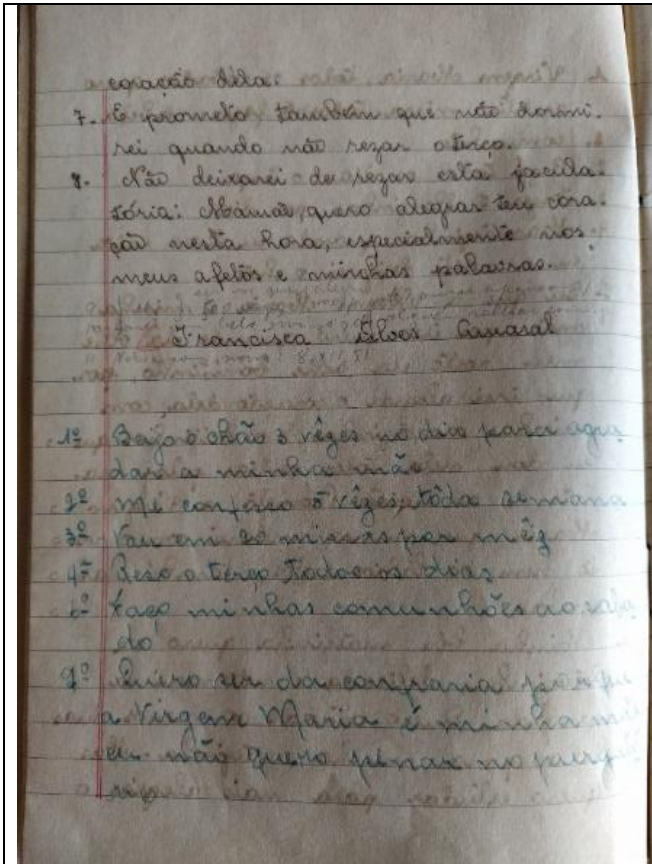 coração dela.
7. E prometo também que não dormi-
rei quando não rezar o terço.
8. Não deixarei de rezar esta jacula-
tória: Mamãe, quero alegrar teu cora-
ção nesta hora, especialmente nos
meus afetos e minhas palavras.
Francisca Alves
1º Beijo o chão 3 vêzes no dia para agra
dar a minha mãe
2º Me confesso 5 vêzes tôda semana
3º Vou em 20 missas por mêz
4º Reso o terço todos os dias
6º Faço minhas comunhões ao sába
do
9º Quero ser da confraria porque
a Virgem Maria é minha
eu não quero penar no purga